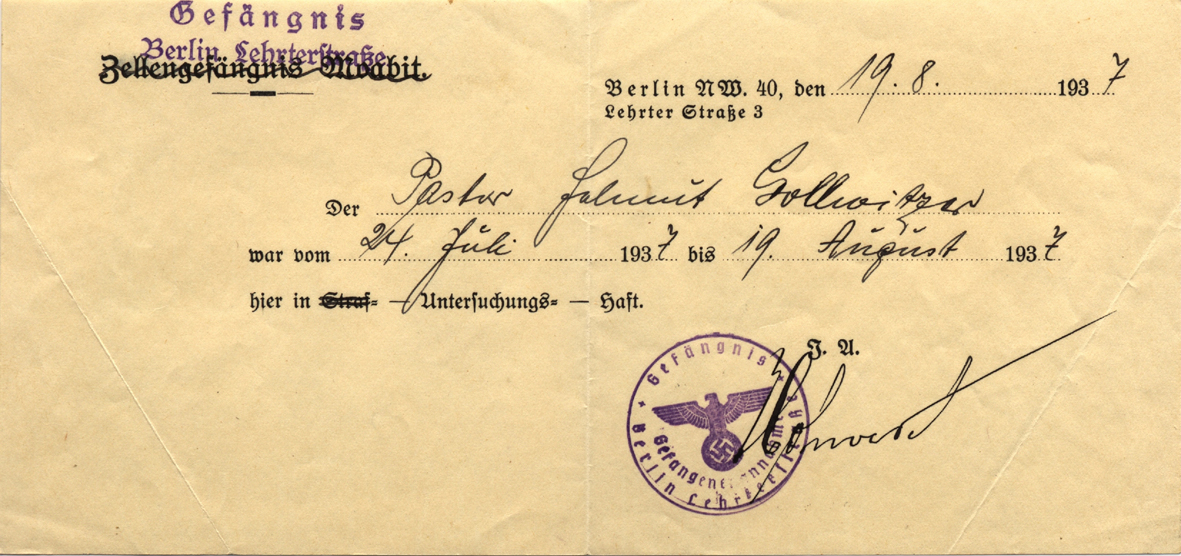 Gefängnis
Berlin, Lehrterstraße
Zellengefängnis Moabit.
Berlin NW. 40, den 19. 8. 1937
Lehrter Straße 3
Der Pastor Helmut Gollwitzer
war vom 24. Juli 1937 bis 19. August 1937
hier in Straf- — Untersuchungs- — Haft.
J. A.
Gefängnis
Gefangenenannahme
Berlin Lehrterstraße